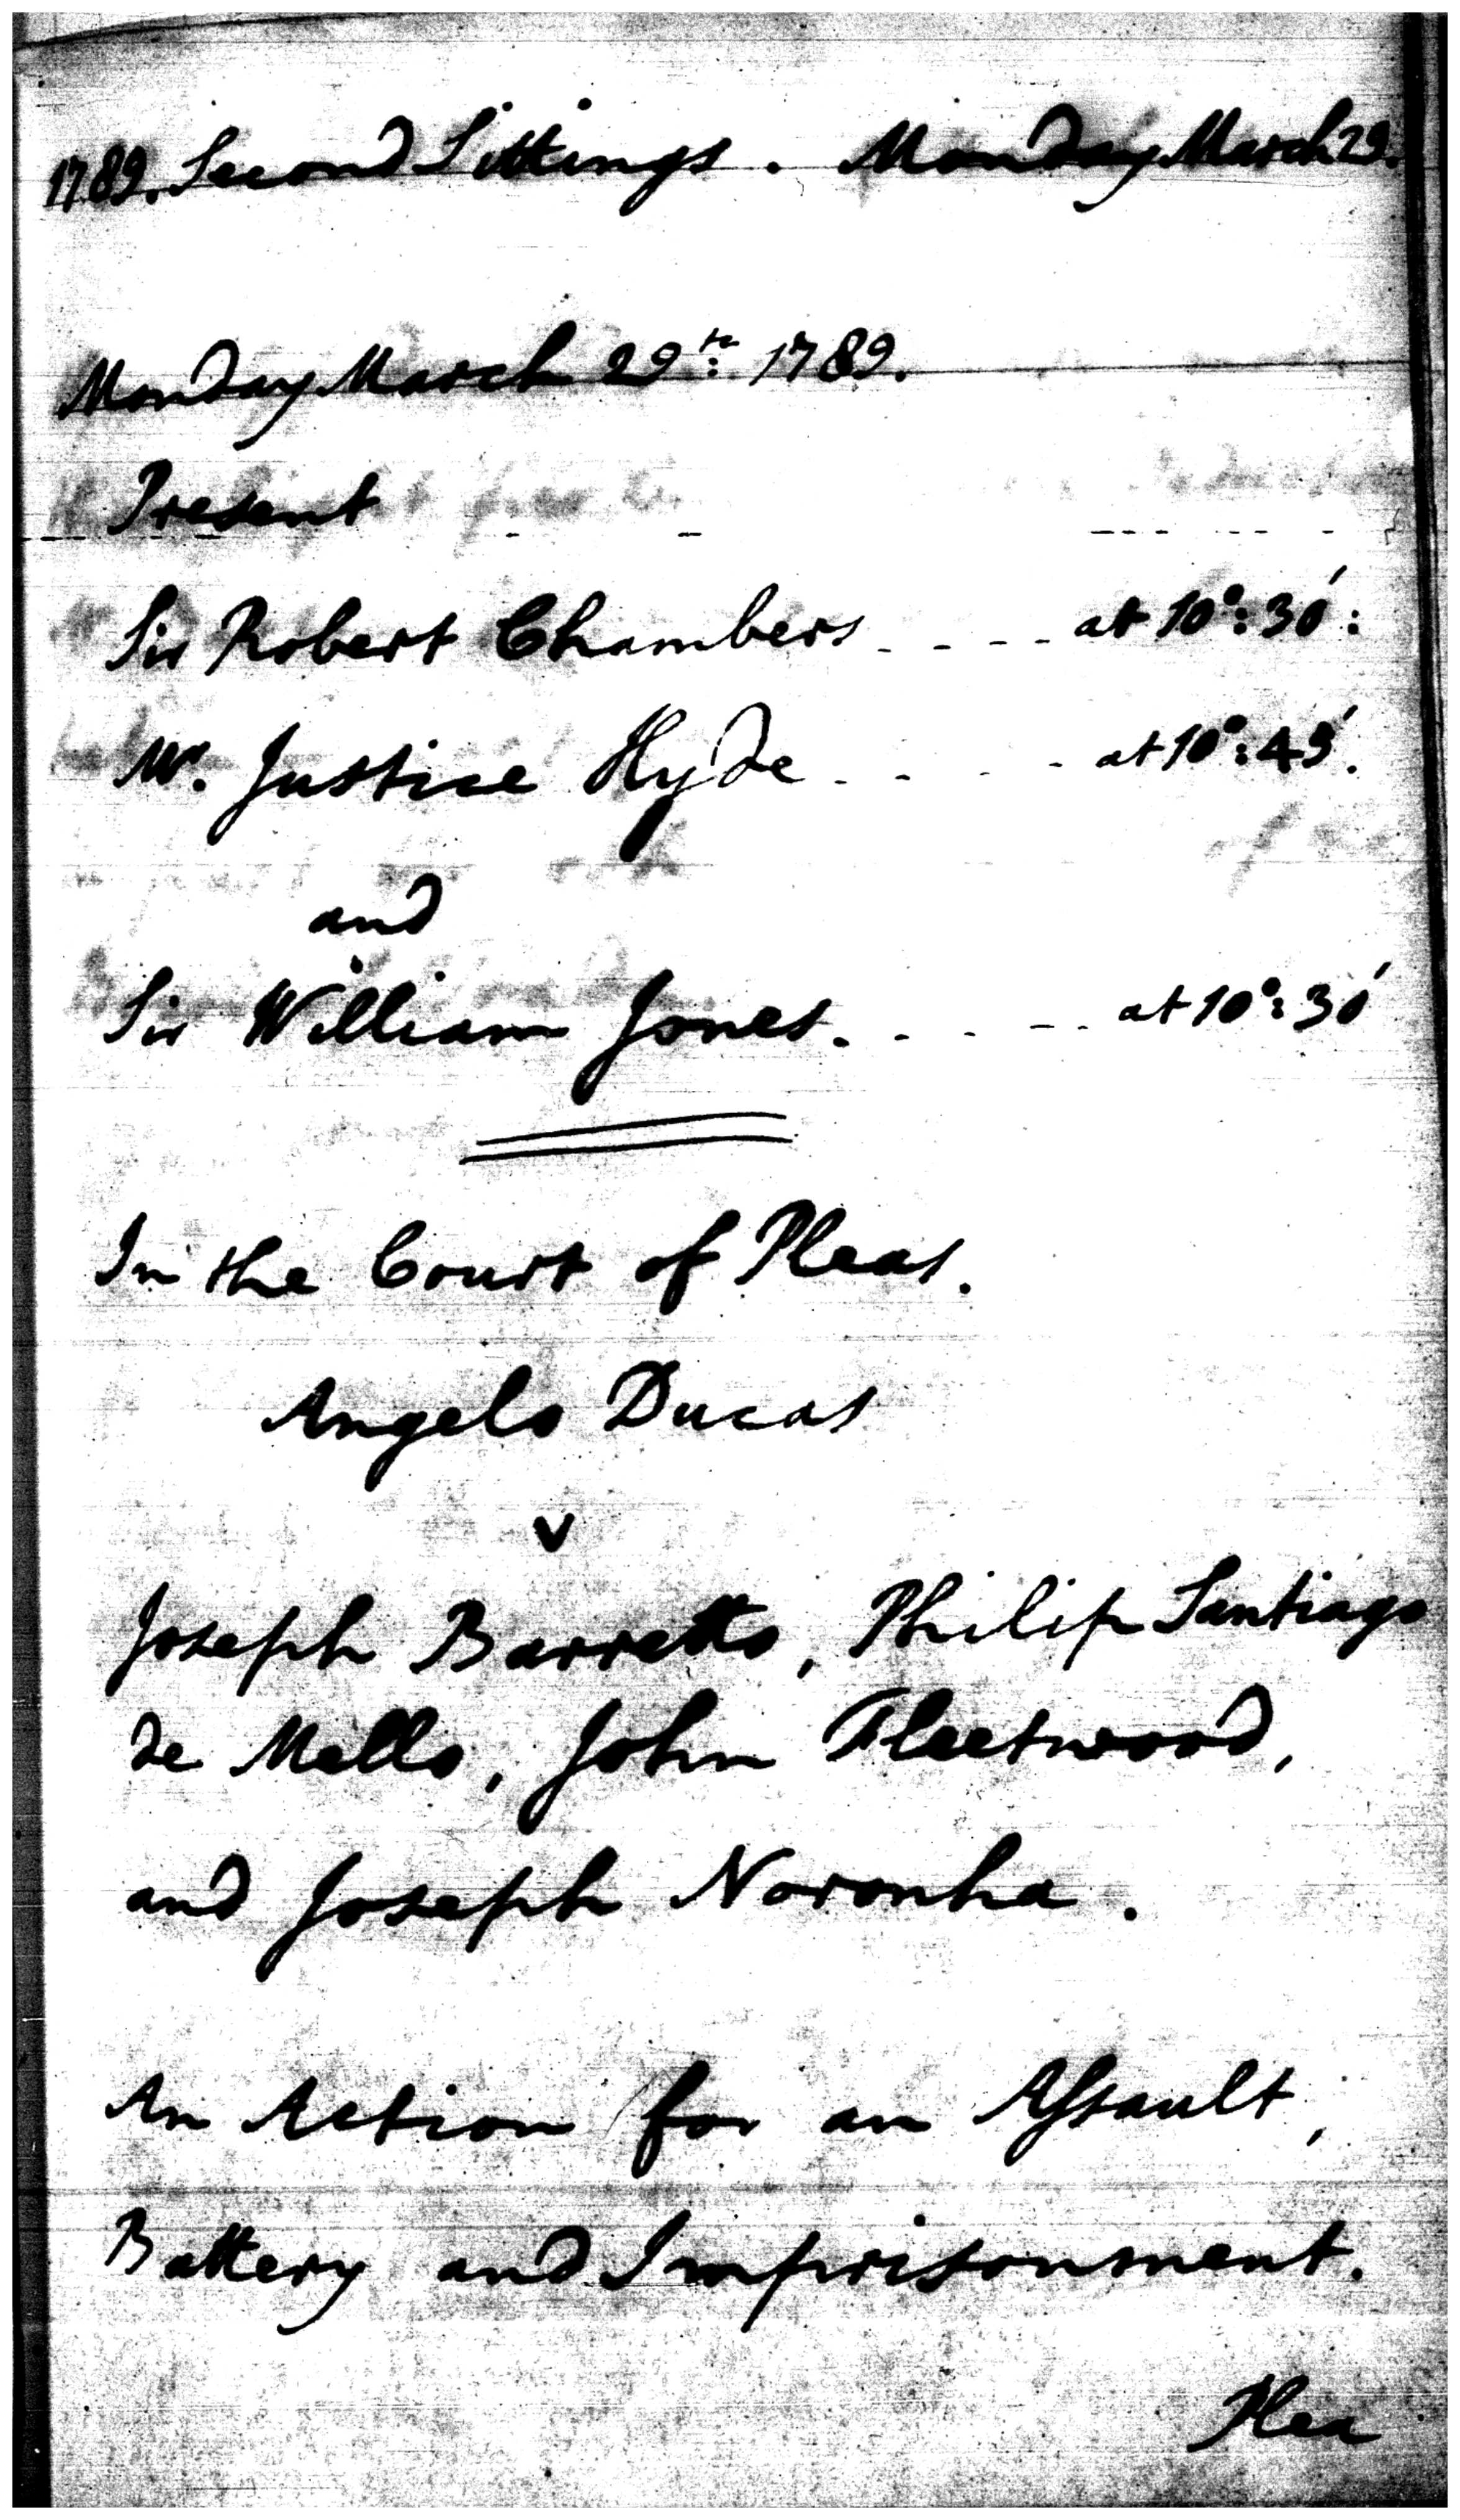 1789. Second Sittings. Monday March 29.
Monday March 29th: 1789.
Present
Sir Robert Chambers - - - - at 10°: 30':
Mr. Justice Hyde - - - - at 10°: 45'.
and
Sir William Jones. - - - - at 10°: 30'
In the Court of Pleas.
Angelo Ducas
v
Joseph Barretto, Philip Santiago
de Mello, John Fleetwood,
and Joseph Noronha.
An Action for an Assault,
Battery and Imprisonment.
Plea